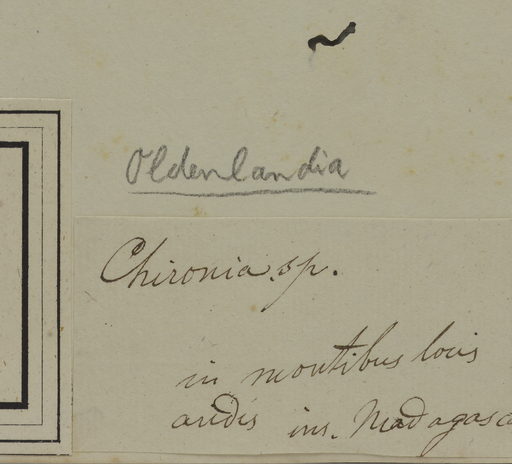 Oldenlandia
Chironia sp.
in montibus locis
aridis ins. Madagasc